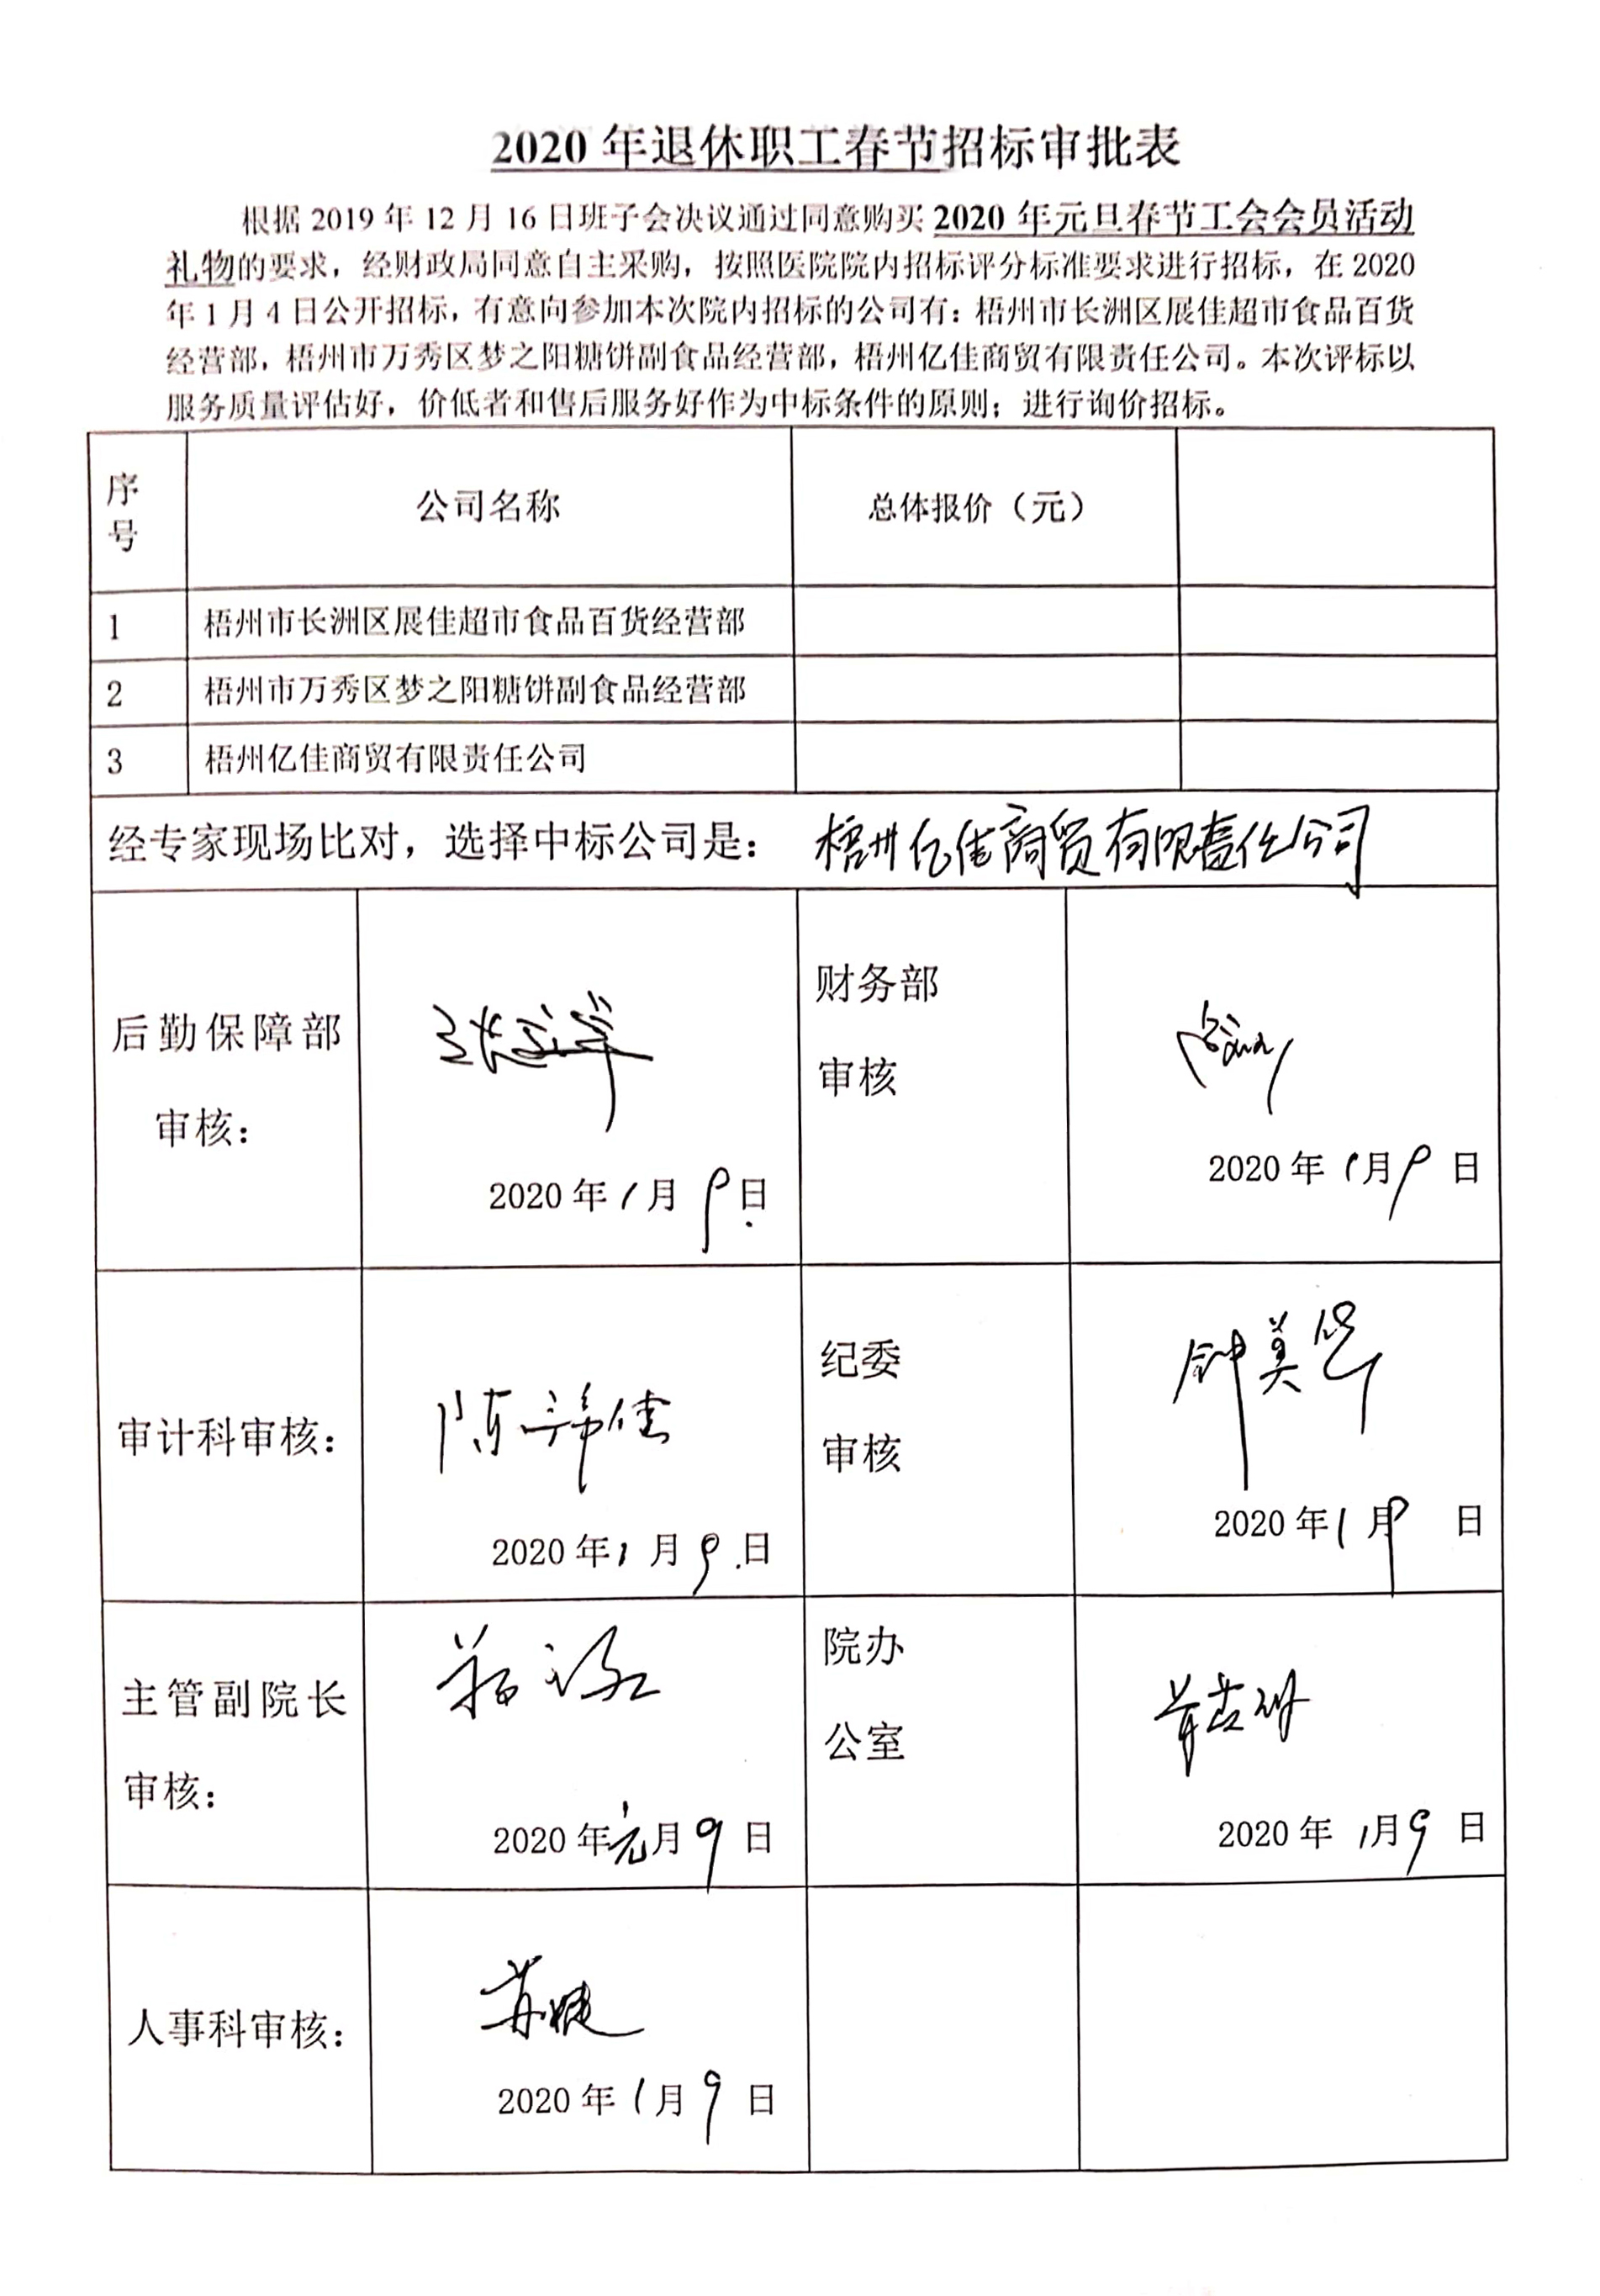 2020 年退休职工春节招标审批表
根据 2019 年 12 月 16 日班子会决议通过同意购买 2020 年元旦春节工会会员活动
礼物的要求，经财政局同意自主采购，按照医院院内招标评分标准要求进行招标，在 2020
年 1 月 4 日公开招标，有意向参加本次院内招标的公司有：梧州市长洲区展佳超市食品百货
经营部，梧州市万秀区梦之阳糖饼副食品经营部，梧州亿佳商贸有限责任公司。本次评标以
服务质量评估好，价低者和售后服务好作为中标条件的原则；进行询价招标。
序号 公司名称 总体报价（元）
1 梧州市长洲区展佳超市食品百货经营部
2 梧州市万秀区梦之阳糖饼副食品经营部
3 梧州亿佳商贸有限责任公司
经专家现场比对，选择中标公司是： 梧州亿佳商贸有限责任公司
后勤保障部
审核：
2020 年 1 月 9 日
财务部
审核
2020 年 1 月 9 日
审计科审核：
2020 年 1 月 9 日
纪委
审核
2020 年 1 月 9 日
主管副院长
审核：
2020 年元月 9 日
院办
公室
2020 年 1 月 9 日
人事科审核：
2020 年 1 月 9 日